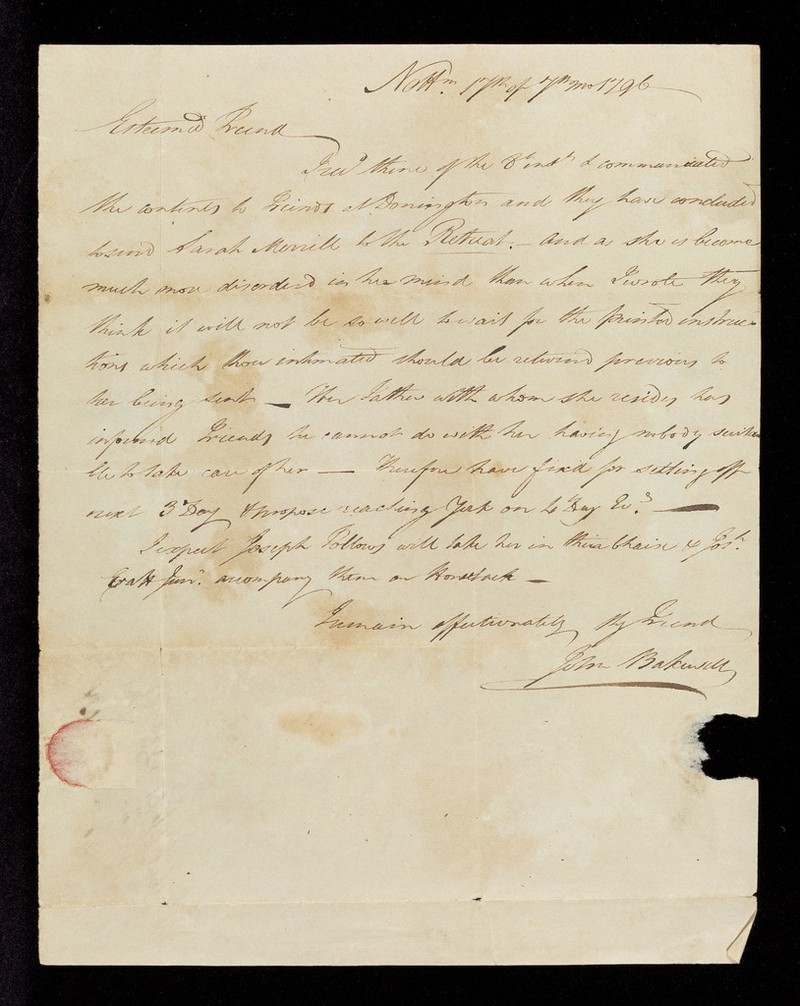 Nottm. 17th of 7th mo 1796
Esteem'd Friend
I recd thine of the 8th indt & communicated
the contents to Friends at Donington and they have concluded
to send Sarah Merrill to the Retreat. — And as she is become
much more disorderd in her mind than when I wrote they
think it will not be so well to wait for the printed instruc-
tions which thou intimated should be returnd previous to
her being sent — Her Father with whom she resides has
informd Friends he cannot do with her having nobody suita
ble to take care of her — Therefore have fixd for setting off
next 3d Day & propose reaching York on 4th Day Eve. —
I expect Joseph Follows will take her in their Chaise & Josh.
Junr. accompany them on Horseback —
I remain affectionately thy Friend
John Bakewell